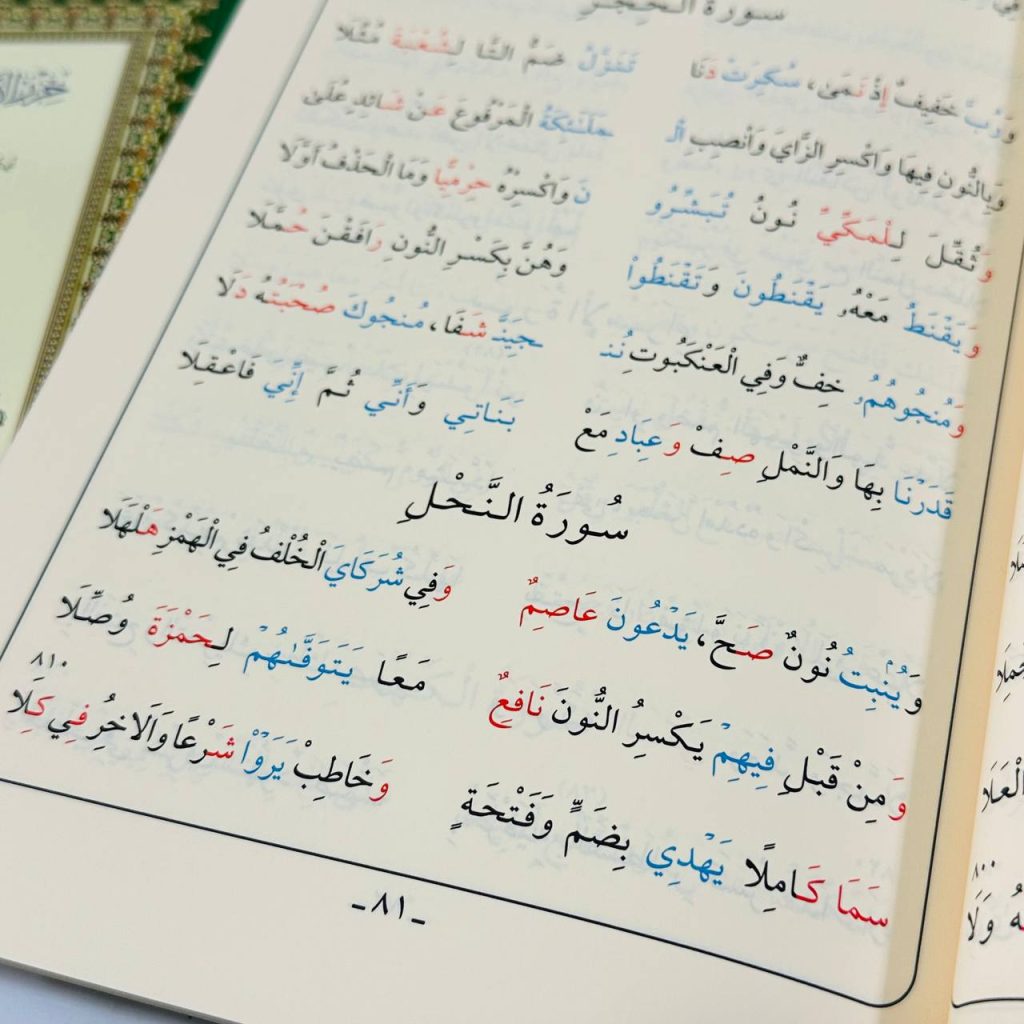 سُورَةُ الْحِجْرِ
وَرُبَّ خَفِيفٌ إِذْ نَمَى، سُكِرَتْ دَنَا تَنَزَّلُ ضَمُّ التَّا لِشُعْبَةَ مُثِّلَا
وَبِالنُّونِ فِيهَا وَاكْسِرِ الزَّايَ وَانْصِبِ الْـ ـمَلَٰئِكَةَ الْمَرْفُوعَ عَنْ شَائِدٍ عُلَىٰ
وَثُقِّلَ لِلْمَكِّيِّ نُونُ تُبَشِّرُو نَ وَاكْسِرْهُ حِرْمِيًّا وَمَا الْحَذْفُ أَوَّلَا
وَيَقْنَطُ مَعْهُۥ يَقْنَطُونَ وَتَقْنَطُوا وَهُنَّ بِكَسْرِ النُّونِ رَافَقْنَ حُمَّلَا
وَمُنجُوهُمُۥ خِفٌّ وَفِي الْعَنْكَبُوتِ نُنـ ـجِيَنَّ شَفَا، مُنجُوكَ صُحْبَتُهُ دَلَا
قَدَرْنَا بِهَا وَالنَّمْلِ صِفْ وَعِبَادِ مَعْ بَنَاتِي وَأَنِّي ثُمَّ إِنِّي فَاعْقِلَا
سُورَةُ النَّحْلِ
وَيُنْبِتُ نُونٌ صَحَّ، يَدْعُونَ عَاصِمٌ وَفِي شُرَكَايَ الْخُلْفُ فِي الْهَمْزِ هَلْهَلَا
وَمِنْ قَبْلِ فِيهِمْ يَكْسِرُ النُّونَ نَافِعٌ مَعًا يَتَوَفَّىٰهُمْ لِحَمْزَةَ وُصِّلَا
٨١٠
سَمَا كَامِلًا يَهْدِي بِضَمٍّ وَفَتْحَةٍ وَخَاطِبْ يَرَوْا شَرْعًا وَالَاخِرُ فِي كِلَا
-٨١-
٨٠٠